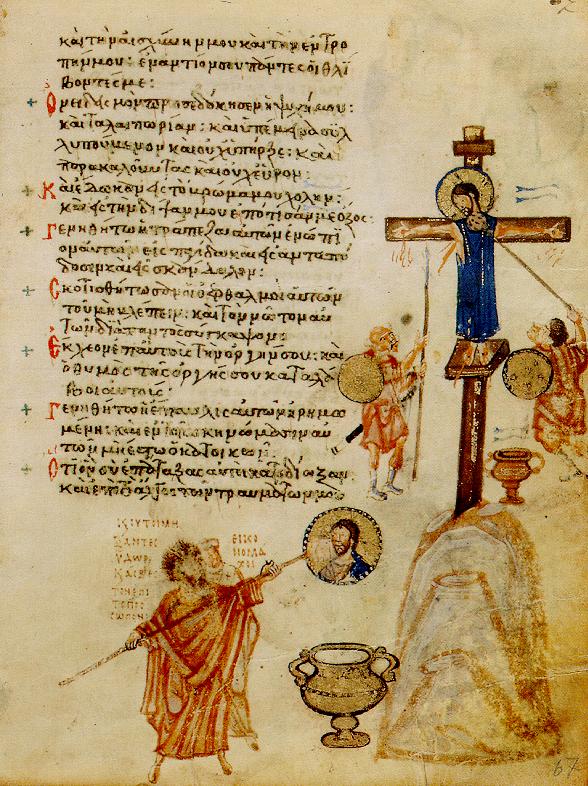 καὶ τὴν αἰσχύνην μου καὶ τὴν ἐντρο
πήν μου: ἐναντίον σου πάντες οἱ θλί
βοντές με:
Ὀνειδισμὸν προσεδόκησεν ἡ ψυχή μου:
καὶ ταλαιπωρίαν: καὶ ὑπέμεινα συλ
λυπούμενον καὶ οὐχ ὑπῆρξε: καὶ
παρακαλοῦντας καὶ οὐχ εὗρον:
Καὶ ἔδωκαν εἰς τὸ βρῶμά μου χολήν:
καὶ εἰς τὴν δίψαν μου ἐπότισάν με ὄξος:
Γενηθήτω ἡ τράπεζα αὐτῶν ἐνώπι
ον αὐτῶν εἰς παγίδα καὶ εἰς ἀνταπό
δοσιν καὶ εἰς σκάνδαλον:
Σκοτισθήτωσαν οἱ ὀφθαλμοὶ αὐτῶν
τοῦ μὴ βλέπειν: καὶ τὸν νῶτον αὐ
τῶν διὰ παντὸς σύγκαμψον:
Ἔκχεον ἐπ αὐτοὺς τὴν ὀργήν σου: καὶ
ὁ θυμὸς τῆς ὀργῆς σου καταλά
βοι αὐτούς:
Γενηθήτω ἡ ἔπαυλις αὐτῶν ἠρημω
μένη: καὶ ἐν τοῖς σκηνώμασιν αὐ
τῶν μὴ ἔστω ὁ κατοικῶν:
Ὅτι ὃν σὺ ἐπάταξας αὐτοὶ κατεδίωξαν:
καὶ ἐπὶ τὸ ἄλγος τῶν τραυμάτων μου
Κ ΟΥΤΟΙ ΜΗ
ΞΑΝΤΕΣ
ΥΔΩΡ
ΕΙΚΟ
ΝΟΜΑ
ΧΟΙ
67